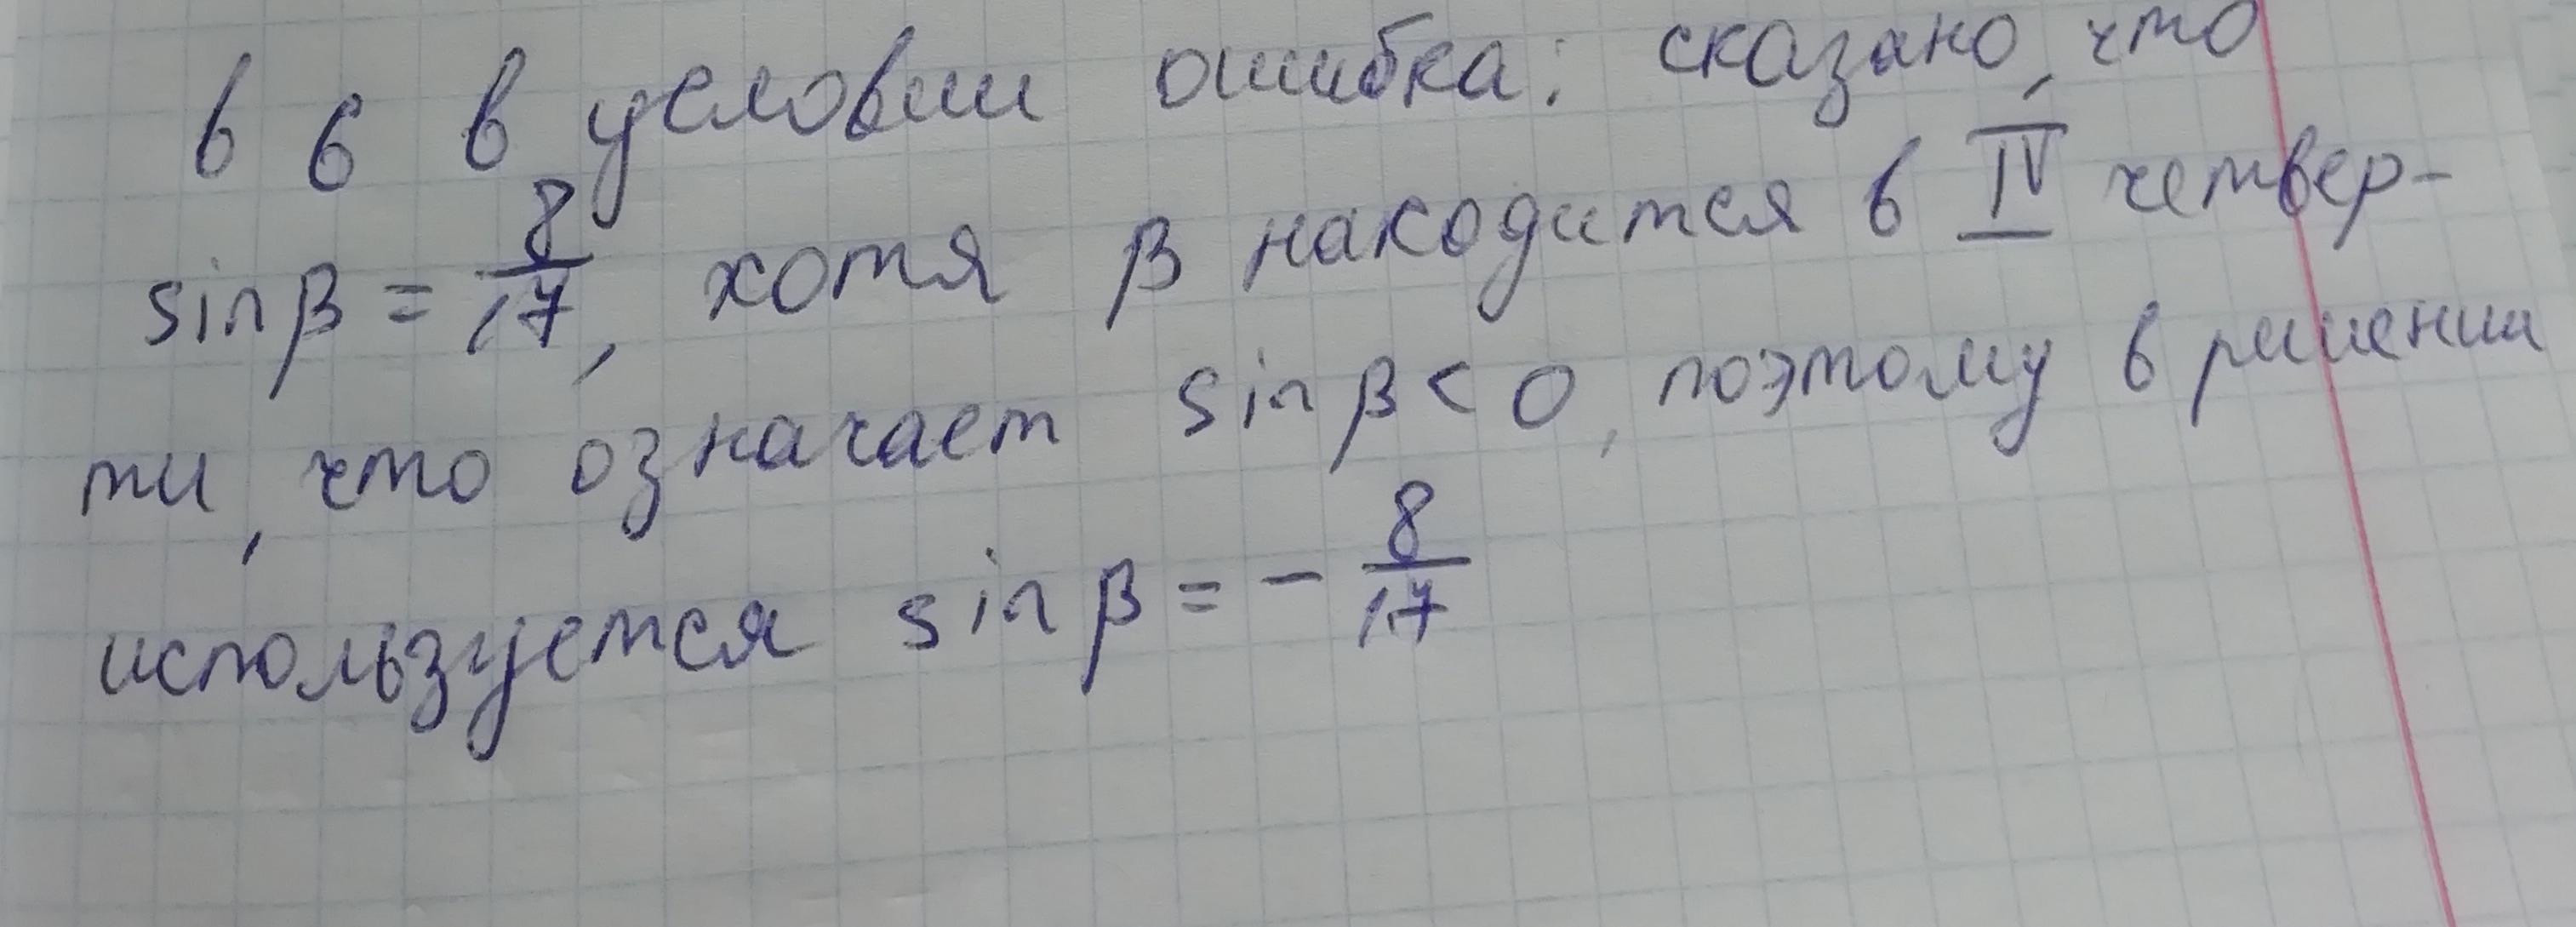 в 6 в условии ошибка: сказано, что
sin β = 8/17, хотя β находится в IV четвер-
ти, что означает sin β < 0, поэтому в решении
используется sin β = - 8/17